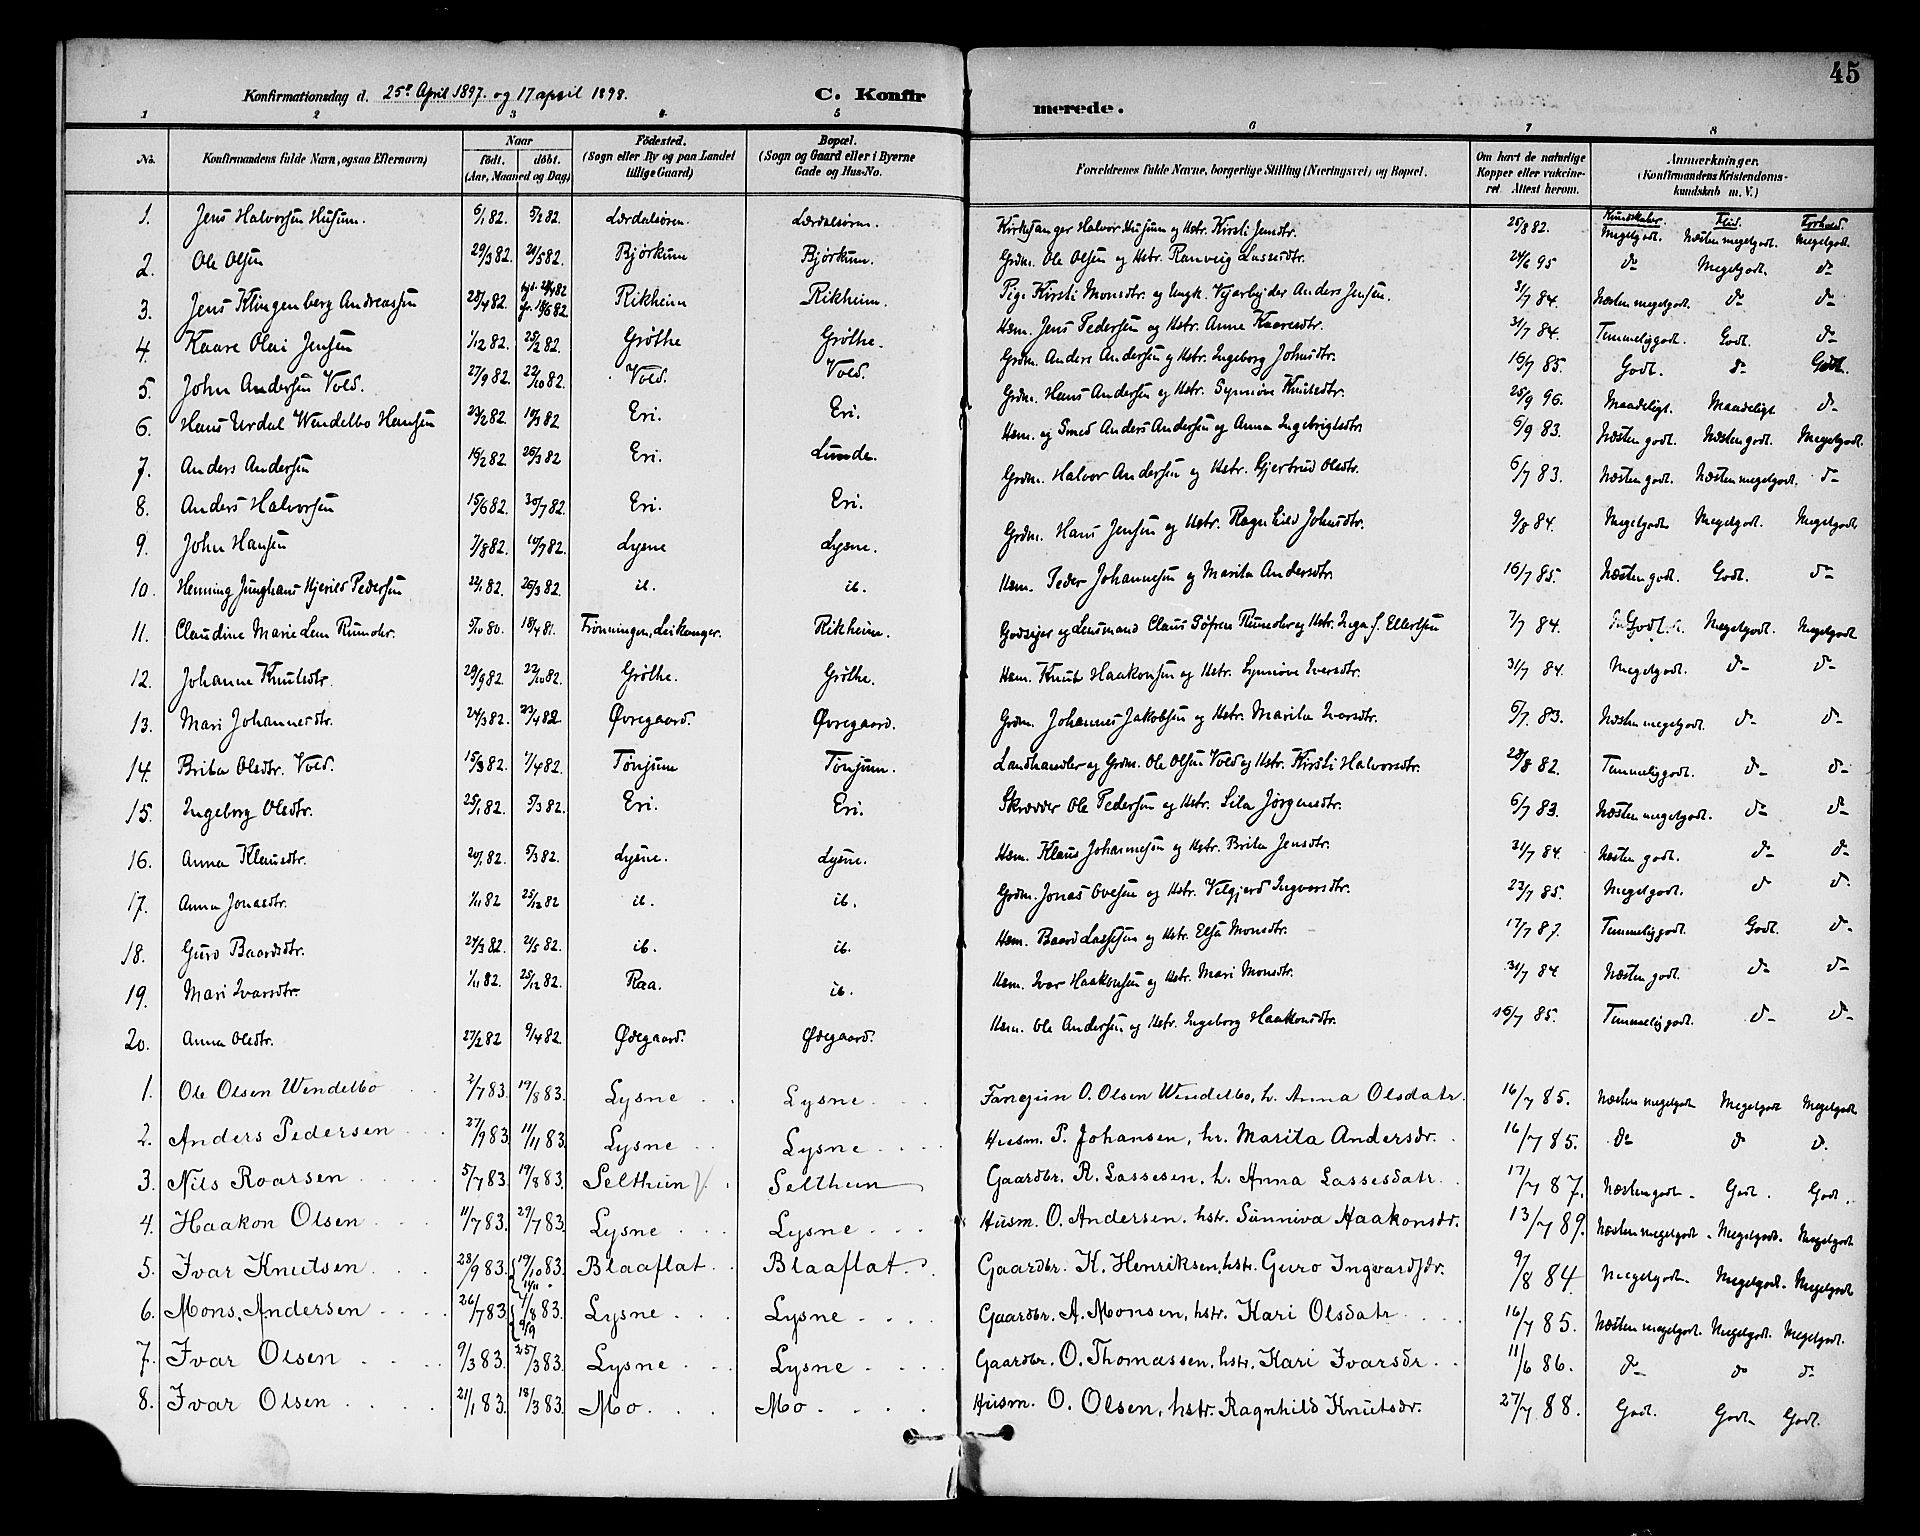 45
Konfirmationsdag d. 25de April 1897. og 17 april 1898. C. Konfirmerede.
1 2 3 4 5 6 7 8
No. Konfirmandens fulde Navn, ogsaa Efternavn) Naar födt. döbt. (Aar, Maaned og Dag) Födested. (Sogn eller By og paa Landet tillige Gaard) Bopæl. (Sogn og Gaard eller i Byerne Gade og Hus-No. Forældrenes fulde Navne, borgerlige Stilling (Næringsvei) og Bopæl. Om havt de naturlige Kopper eller vakcineret. Attest herom. Anmærkninger. (Konfirmandens Kristendomskundskab m. V.)
Kundskaber. Flid. Forhold.
1. Jens Halvorsen Husum. 6/1 82. 5/2 82. Lærdalsören. Lærdalsören. Kirkesanger Halvor Husum og Hstr. Kirsti Jensdtr. 25/8 82. Megetgodt. Næsten megetgodt. Megetgodt
2. Ole Olsen 29/3 82. 21/5 82. Bjørkum Bjørkum. Grdm. Ole Olsen og Hstr. Ranveig Lassesdtr. 24/6 95 do Megetgodt. do
3. Jens Klingenberg Andreassen 28/4 82. 18/6 82. Rikheim Rikheim. Pige Kirsti Monsdtr. og Ungk. Vejarbejder Anders Jensen. 31/7 84. Næsten megetgodt. do do
4 Kaare Olai Jensen 1/12 82. 25/2 82. Grøthe Grøthe. Hsm. Jens Pedersen og Hstr. Anne Kaaresdtr. 31/7 84. Temmeliggodt. Godt. do
5. John Andersen Vold. 27/9 82. 22/10 82. Vold. Vold. Grdm. Anders Andersen og Hstr. Ingeborg Johnsdtr. 16/7 85. Godt. do Godt.
6. Hans Urdal Wendelbo Hansen 23/2 82. 19/3 82 Eri. Eri. Grdm. Hans Andersen og Hstr. Synnöve Knutsdtr. 25/9 96. Maadeligt. Maadeligt do
7. Anders Andersen 16/2 82. 26/3 82 Eri. Lunde. Hsm. og Smed Anders Andersen og Anna Ingebrigtsdtr 6/9 83. Næsten godt. Næsten godt. Megetgodt.
8. Anders Halvorsen 15/6 82. 30/7 82. Eri. Eri. Grdm. Halvor Andersen og Hstr. Gjertrud Olsdtr. 6/7 83. Næsten godt. Næsten megetgodt. do
9. John Hansen 7/8 82. 10/7 82. Lysne Lysne. Grdm. Hans Jensen og Hstr. Ragnhild Johnsdtr. 9/8 84. Megetgodt Megetgodt. Megetgodt
10. Henning Junghans Hjerild Pedersen 22/1 82. 26/3 82 ib. ib. Hsm. Peder Johannesen og Marita Andersdtr. 16/7 85. Næsten godt. Godt. do
11. Claudine Marie Lem Rumohr. 5/10 80. 18/4 81. Frönningen, Leikanger. Rikheim. Godsejer og Lensmand Claus Söfren Rumohr og Hstr. Inga f. Ellertsen 7/7 84. Godt. Megetgodt. Megetgodt
12. Johanne Knutsdtr. 29/9 82. 22/10 82. Grøthe. Grøthe. Hsm. Knut Haakonsen og Hstr. Synnöve Iversdtr. 31/7 84. Megetgodt. do do
13. Mari Johannesdtr. 24/3 82. 23/4 82 Øvregaard. Øvregaard. Grdm. Johannes Jakobsen og Hstr. Marita Ivarsdtr. 6/7 83. Næsten megetgodt. do do
14. Brita Olsdtr. Vold. 15/3 82. 7/4 82. Tönjum Tönjum. Landhandler og Grdm. Ole Olsen Vold og Hstr. Kirsti Halvorsdtr. 28/8 82. Temmeliggodt. do do
15. Ingeborg Olsdtr. 25/1 82. 5/3 82. Eri. Eri. Skrædder Ole Pedersen og Hstr. Sila Jörgensdtr. 6/7 83. Næsten megetgodt. do do
16. Anna Klausdtr. 20/1 82. 5/3 82. Lysne. Lysne. Hsm. Klaus Johannesen og Hstr. Brita Jensdtr. 31/7 84. Næsten godt. do do
17. Anna Jonasdtr. 1/11 82 25/12 82 ib. ib. Grdm. Jonas Ovesen og Hstr. Velgjerd Ingvarsdtr. 23/7 85. Megetgodt. do do
18. Guro Baardsdtr. 24/3 82. 21/5 82. ib. ib. Hsm. Baard Lassesen og Hstr. Elsa Monsdtr. 17/7 87. Temmeliggodt. Godt. do
19. Mari Ivarsdtr. 1/11 82. 25/12 82. Raa. ib. Hsm. Ivar Haakonsen og Hstr. Mari Monsdtr. 31/7 84 Næsten godt. do do
20. Anna Olsdtr. 27/2 82 9/4 82 Ødegaard. Ødegaard. Hsm. Ole Andersen og Hstr. Ingeborg Haakonsdtr. 16/7 85. Temmeliggodt. do do
1. Ole Olsen Wendelbo 2/7 83. 19/8 83. Lysne Lysne Fanejun O. Olsen Wendelbo, h. Anna Olsdatr. 16/7 85. Næsten megetgodt Megetgodt Megetgodt
2. Anders Pedersen 27/9 83. 11/11 83. Lysne Lysne Husm. P. Johansen, hr. Marita Andersdr. 16/7 85. do do do
3. Nils Roarsen 5/7 83. 19/8 83. Selthun Selthun Gaardbr. R. Lassesen, h. Anna Lassesdatr. 17/7 87. Næsten godt Godt. Godt.
4. Haakon Olsen 11/7 83. 29/7 83. Lysne Lysne Husm. O. Andersen, hstr. Sunniva Haakonsdr. 13/7 89. Næsten megetgodt Megetgodt. Megetgodt
5. Ivar Knutsen 28/9 83. 19/10 83. Blaaflat Blaaflat Gaardbr. K. Henriksen, hstr. Guro Ingvardsdr. 9/8 84. Megetgodt Megetgodt. Megetgodt
6. Mons Andersen 26/7 83. 7/8 83. 9/9 Lysne Lysne Gaardbr. A. Monsen, hstr. Kari Olsdatr 16/7 85. Næsten megetgodt. Megetgodt. Megetgodt.
7. Ivar Olsen 9/3 83. 25/3 83. Lysne Lysne Gaardbr. O. Thomassen, hstr. Kari Ivarsdr 11/6 86. do do do
8. Ivar Olsen 21/1 83. 18/3 83. Mo Mo Husm. O. Olsen, hstr. Ragnhild Knutsdr. 27/7 88. Godt. Godt Godt.